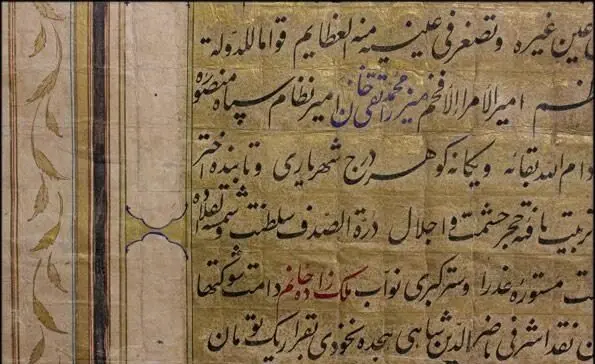 عین غیره و تصغر فی عینیه منه العظایم قواما للدولة
امیر الامراء الافخم میرزا محمد تقی خان امیر نظام سپاه منصوره
الله بقائه و یگانه گوهر درج شهریاری و تابنده اختر
تربیت یافته حجر حشمت و اجلال درة الصدف سلطنت و شمسة القلاده
مستوره عذرا و ستر کبری نواب ملک زاده خانم دامت شوکتها
نقد اشرفی ناصر الدین شاهی هجده نخودی بقرار یک تومان